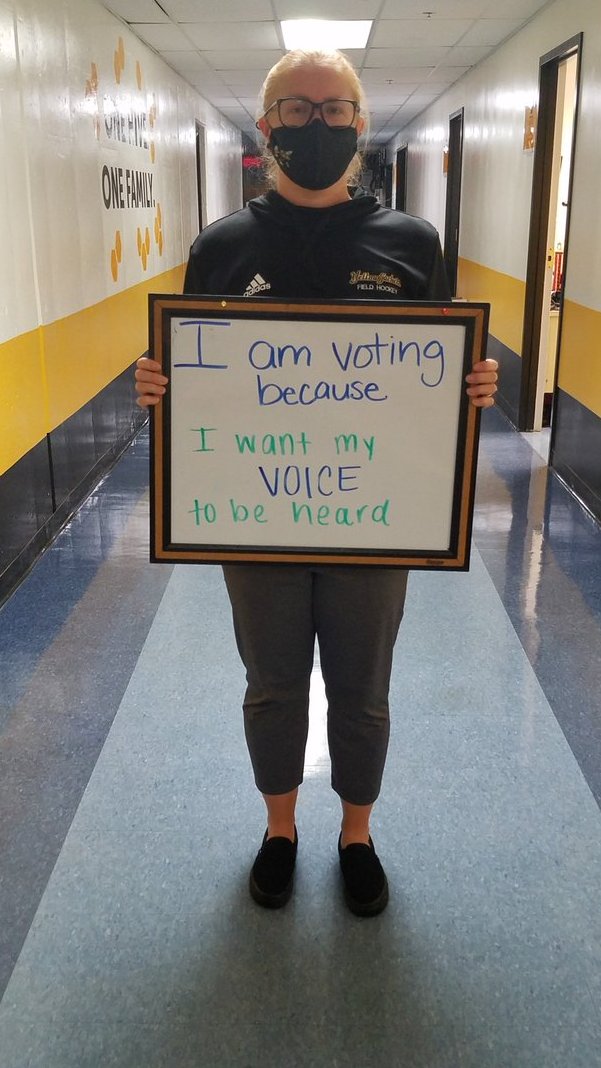 ONE HIVE
ONE FAMILY.
adidas
Yellow Jackets
FIELD HOCKEY
I am voting
because
I want my
VOICE
to be heard